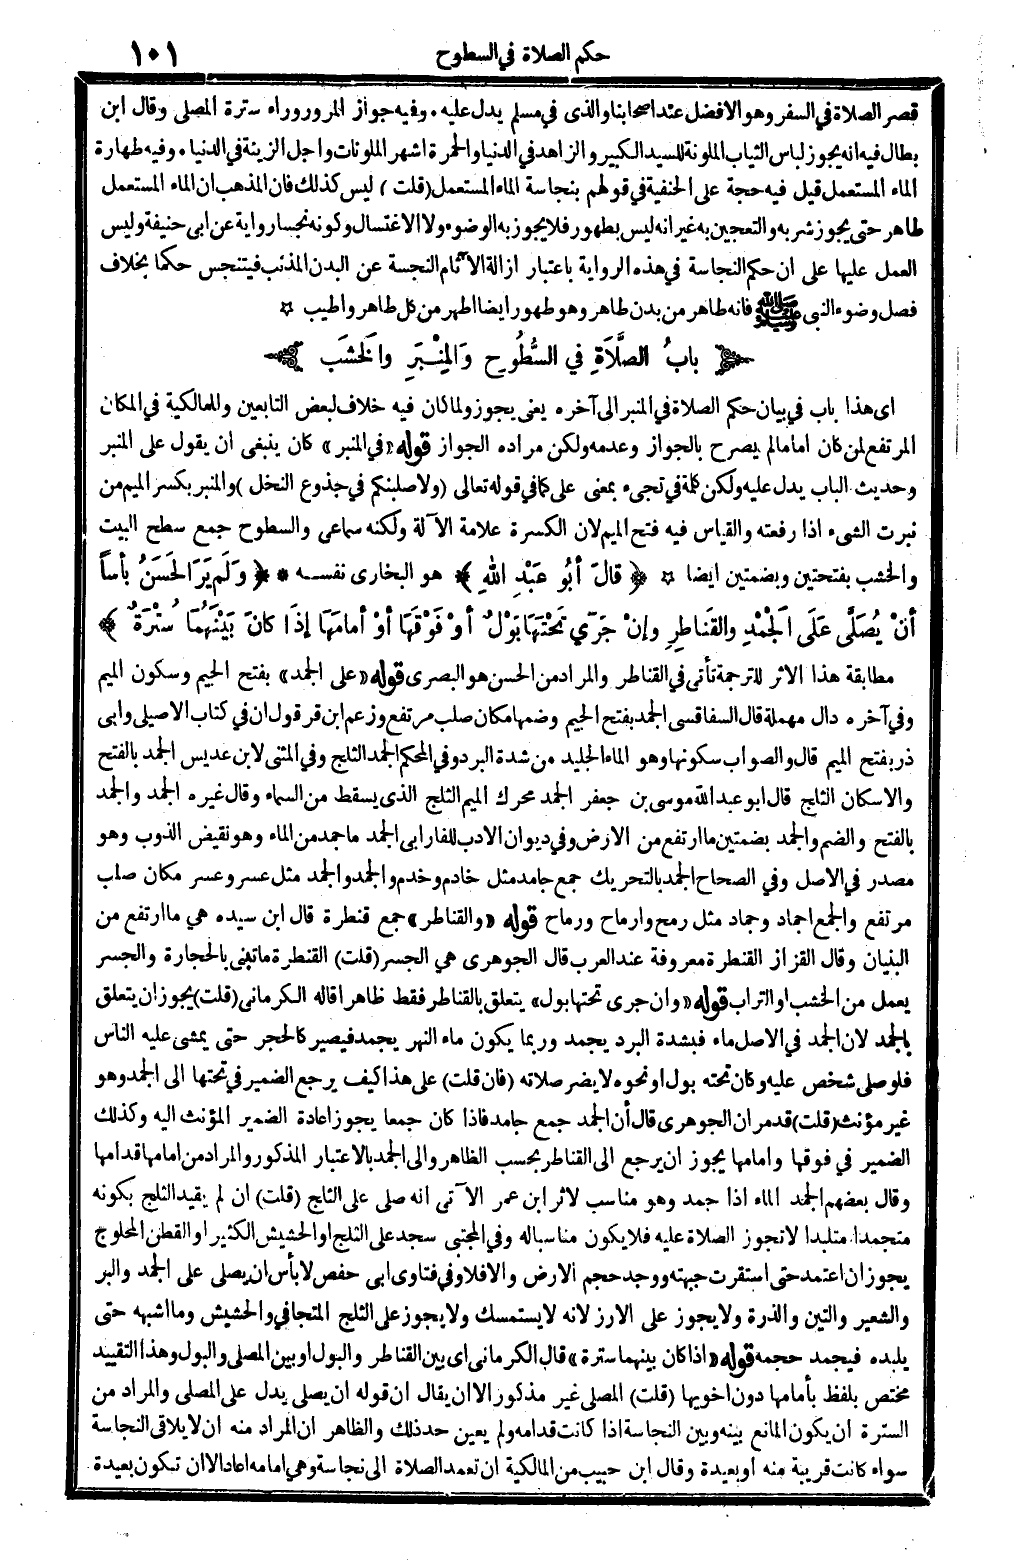 حكم الصلاة في السطوح ١٠١
قصر الصلاة في السفر وهو الافضل عند اصحابنا والذى في مسلم يدل عليه . وفيه جواز المرور وراء سترة المصلى وقال ابن
بطال فيه انه يجوز لباس الثياب الملونة للسيد الكبير والزاهد في الدنيا والحمرة اشهر الملونات واجل الزينة في الدنيا . وفيه طهارة
الماء المستعمل قيل فيه حجة على الحنفية في قولهم بنجاسة الماء المستعمل (قلت) ليس كذلك فان المذهب ان الماء المستعمل
طاهر حتى يجوز شربه والتعجين به غير انه ليس بطهور فلا يجوز به الوضوء ولا الاغتسال وكونه نجسا رواية عن ابى حنيفة وليس
العمل عليها على ان حكم النجاسة في هذه الرواية باعتبار ازالة الآثام النجسة عن البدن المذنب فيتنجس حكما بخلاف
فصل وضوء النبى ﷺ فانه طاهر من بدن طاهر وهو طهور ايضا اطهر من كل طاهر واطيب ☆
﴿ بابُ الصَّلَاةِ في السُّطُوحِ وَالمِنْبَرِ والخَشَب ﴾
اى هذا باب في بيان حكم الصلاة في المنبر الى آخره يعنى يجوز ولما كان فيه خلاف لبعض التابعين وللمالكية في المكان
المرتفع لمن كان اماما لم يصرح بالجواز وعدمه ولكن مراده الجواز قوله «في المنبر» كان ينبغى ان يقول على المنبر
وحديث الباب يدل عليه ولكن كلمة في تجىء بمعنى على كما في قوله تعالى (ولاصلبنكم في جذوع النخل) والمنبر بكسر الميم من
نبرت الشىء اذا رفعته والقياس فيه فتح الميم لان الكسرة علامة الآلة ولكنه سماعى والسطوح جمع سطح البيت
والخشب بفتحتين وبضمتين ايضا ☆ ﴿ قالَ أبُو عَبْدِ اللهِ ﴾ هو البخارى نفسه * ﴿ وَلَم يَرَ الحَسَنُ بأساً
أنْ يُصَلَّى عَلَى الجَمْدِ والقَناطِرِ وإنْ جَرَى تَحْتَهَا بَوْلٌ أوْ فَوْقَهَا أوْ أمامَهَا إذَا كانَ بَيْنَهُمَا سُتْرَةٌ ﴾
مطابقة هذا الاثر للترجمة تأتى في القناطر والمراد من الحسن هو البصرى قوله «على الجمد» بفتح الجيم وسكون الميم
وفي آخره دال مهملة قال السفاقسى الجمد بفتح الجيم وضمها مكان صلب مرتفع وزعم ابن قرقول ان في كتاب الاصيلى وابى
ذر بفتح الميم قال والصواب سكونها وهو الماء الجليد من شدة البرد وفي المحكم الجمد الثلج وفي المثنى لابن عديس الجمد بالفتح
والاسكان الثلج قال ابو عبد الله موسى بن جعفر الجمد محرك الميم الثلج الذى يسقط من السماء وقال غيره الجمد والجمد
بالفتح والضم والجمد بضمتين ما ارتفع من الارض وفي ديوان الادب للفارابى الجمد ما جمد من الماء وهو نقيض الذوب وهو
مصدر في الاصل وفي الصحاح الجمد بالتحريك جمع جامد مثل خادم وخدم والجمد والجمد مثل عسر وعسر مكان صلب
مرتفع والجمع اجماد وجماد مثل رمح وارماح ورماح قوله «والقناطر» جمع قنطرة قال ابن سيده هي ما ارتفع من
البنيان وقال القزاز القنطرة معروفة عند العرب قال الجوهرى هي الجسر (قلت) القنطرة ماتبنى بالحجارة والجسر
يعمل من الخشب او التراب قوله «وان جرى تحتها بول» يتعلق بالقناطر فقط ظاهرا قاله الكرمانى (قلت) يجوز ان يتعلق
بالجمد لان الجمد في الاصل ماء فبشدة البرد يجمد وربما يكون ماء النهر يجمد فيصير كالحجر حتى يمشى عليه الناس
فلو صلى شخص عليه وكان تحته بول او نحوه لا يضر صلاته (فان قلت) على هذا كيف يرجع الضمير في تحتها الى الجمد وهو
غير مؤنث (قلت) قد مر ان الجوهرى قال أن الجمد جمع جامد فاذا كان جمعا يجوز اعادة الضمير المؤنث اليه وكذلك
الضمير في فوقها وامامها يجوز ان يرجع الى القناطر بحسب الظاهر والى الجمد بالاعتبار المذكور والمراد من امامها قدامها
وقال بعضهم الجمد الماء اذا جمد وهو مناسب لاثر ابن عمر الآتى انه صلى على الثلج (قلت) ان لم يقيد الثلج بكونه
متجمدا متلبدا لا تجوز الصلاة عليه فلا يكون مناسبا له وفي المجتبى سجد على الثلج او الحشيش الكثير او القطن المحلوج
يجوز ان اعتمد حتى استقرت جبهته ووجد حجم الارض والا فلا وفي فتاوى ابى حفص لا بأس ان يصلى على الجمد والبر
والشعير والتبن والذرة ولا يجوز على الارز لانه لا يستمسك ولا يجوز على الثلج المتجافي والحشيش وما اشبهه حتى
يلبده فيجمد حجمه قوله «اذا كان بينهما سترة» قال الكرمانى اى بين القناطر والبول او بين المصلى والبول وهذا التقييد
مختص بلفظ بأمامها دون اخويها (قلت) المصلى غير مذكور الا ان يقال ان قوله ان يصلى يدل على المصلى والمراد من
السترة ان يكون المانع بينه وبين النجاسة اذا كانت قدامه ولم يعين حد ذلك والظاهر ان المراد منه ان لا يلاقى النجاسة
سواء كانت قريبة منه او بعيدة وقال ابن حبيب من المالكية ان تعمد الصلاة الى نجاسة وهى امامه اعاد الا ان تكون بعيدة